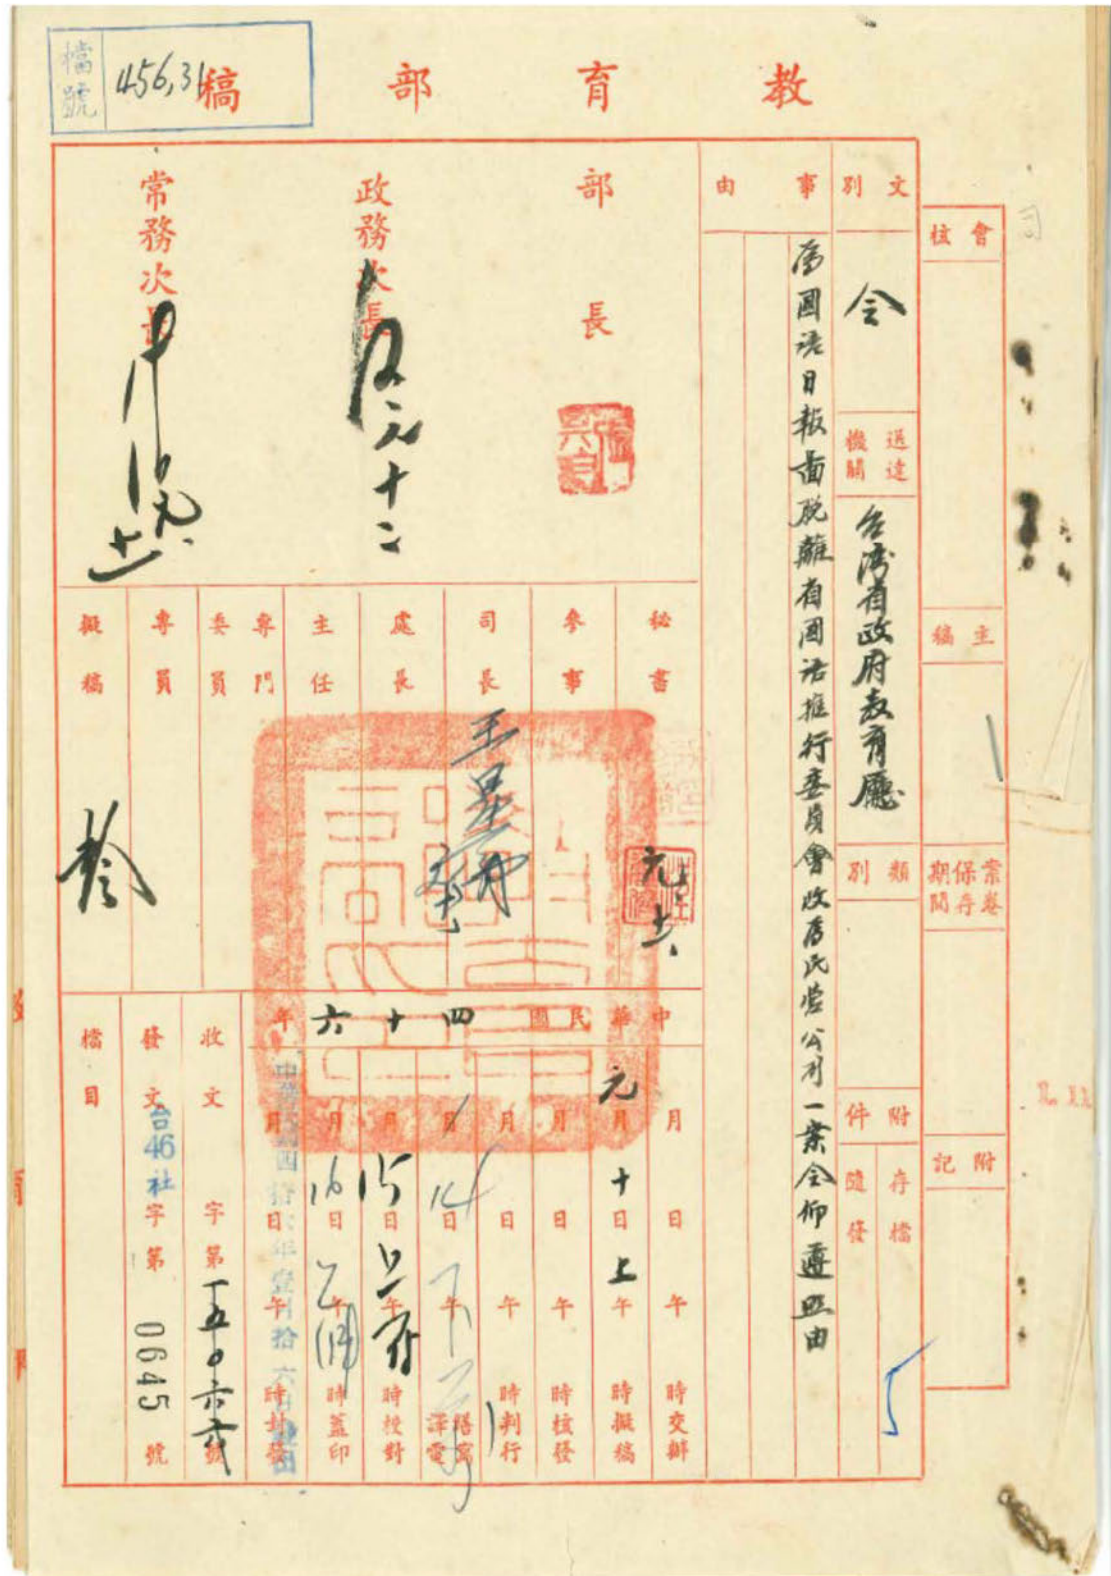 檔號 456,31
教育部稿
會核
主稿
案卷保存期間
附記
文別
令
送達機關
台灣省政府教育廳
類別
附件
存檔
隨發
事由
為國語日報面脫離省國語推行委員會改為民營公司一案令仰遵照由
部長
政務次長
元十二
常務次長
秘書
元十六
參事
司長
王星舟
處長
主任
專門委員
專員
擬稿
中華民國四十六年
月日午時交辦
元月十日上午時擬稿
月日午時核發
月日午時判行
月14日下午繕寫譯電
月15日上午時校對
月16日午時蓋印
月日午時封發
收文字第一五0六六號
發文台46社字第0645號
檔目